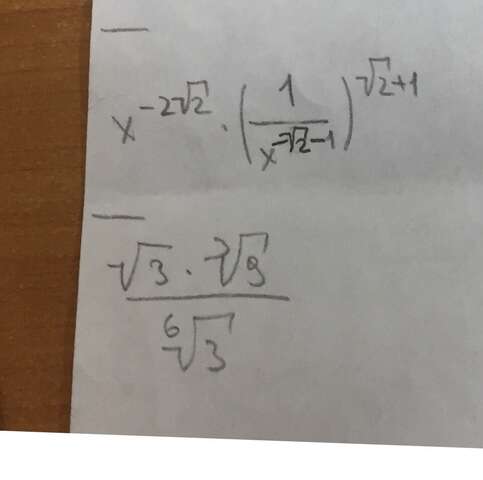 x^{-2√2} · (1/x^{-√2-1})^{√2+1}
√3 · ∛9
⁶√3